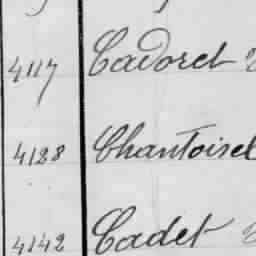 4117 Cadoret
4128 Chantoisel
4142 Cadet